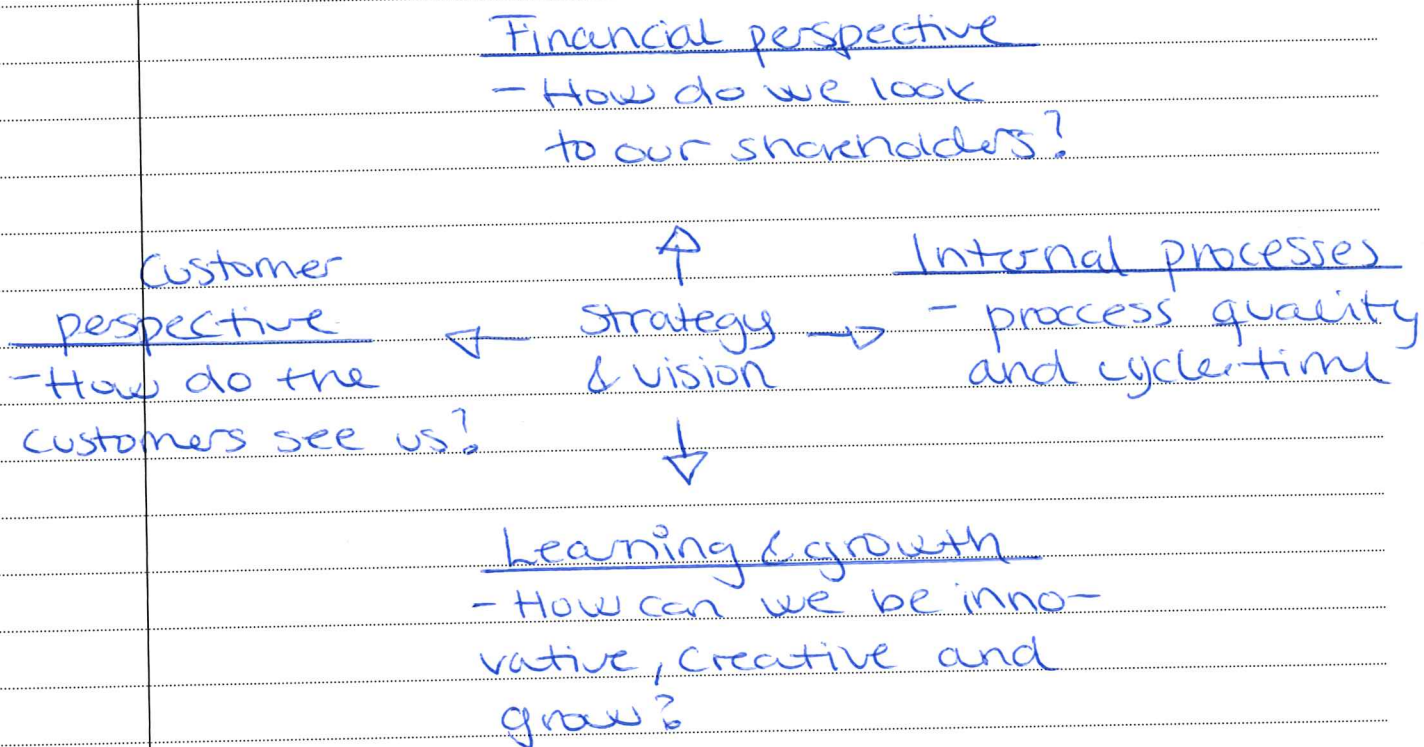 Financial perspective
- How do we look
to our shareholders?
Customer
perspective
- How do the
customers see us?
Strategy
& vision
Internal processes
- proccess quality
and cycle-time
Learning & growth
- How can we be inno-
vative, creative and
grow?